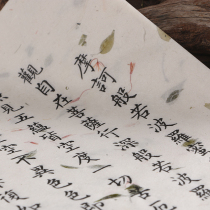 摩訶般若波羅蜜
觀自在菩薩行深般若波羅
見五蘊皆空度一切苦
不異色色即
復如